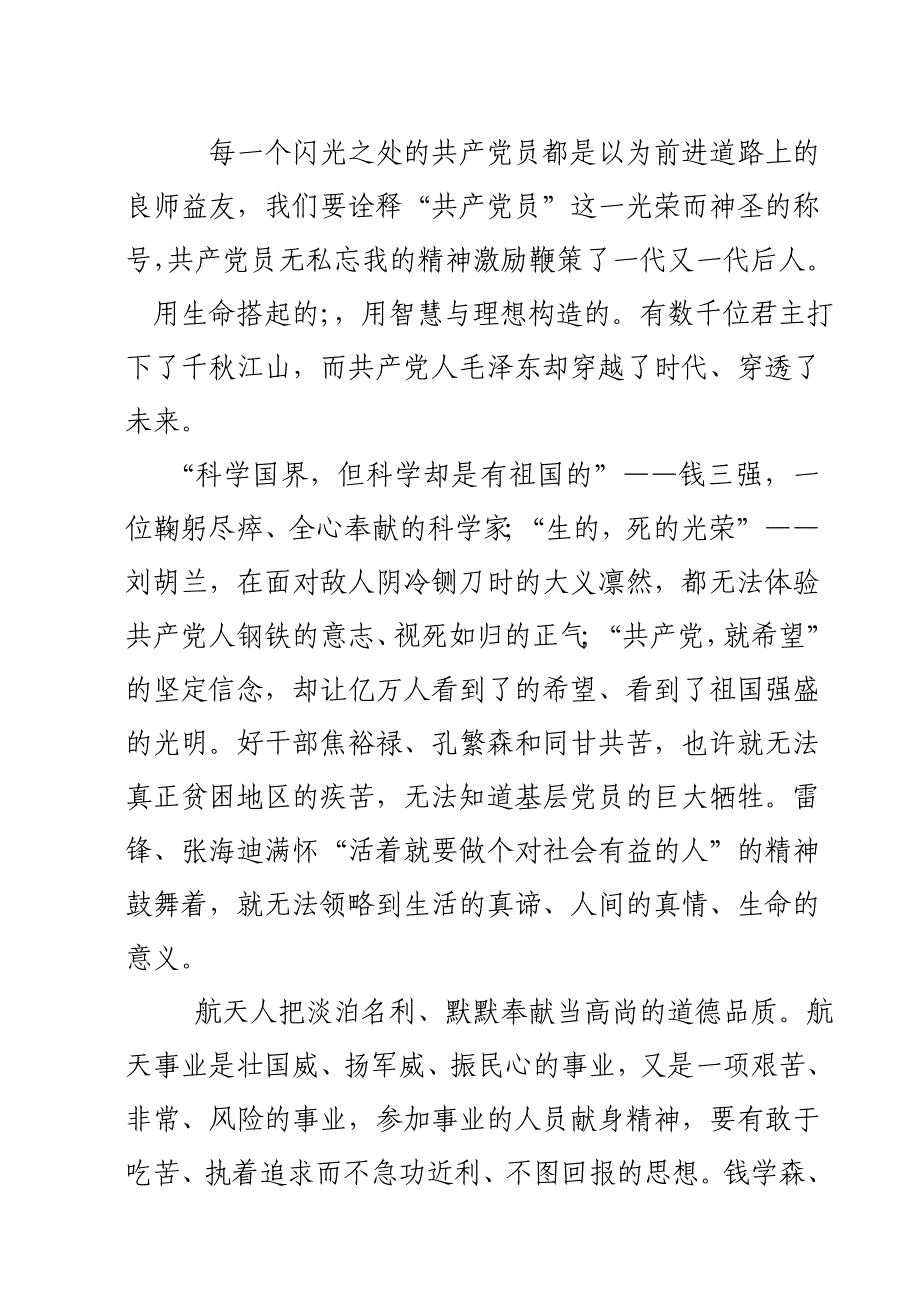 每一个闪光之处的共产党员都是以为前进道路上的
良师益友，我们要诠释“共产党员”这一光荣而神圣的称
号，共产党员无私忘我的精神激励鞭策了一代又一代后人。
用生命搭起的；，用智慧与理想构造的。有数千位君主打
下了千秋江山，而共产党人毛泽东却穿越了时代、穿透了
未来。
“科学国界，但科学却是有祖国的”——钱三强，一
位鞠躬尽瘁、全心奉献的科学家；“生的，死的光荣”——
刘胡兰，在面对敌人阴冷铡刀时的大义凛然，都无法体验
共产党人钢铁的意志、视死如归的正气；“共产党，就希望”
的坚定信念，却让亿万人看到了的希望、看到了祖国强盛
的光明。好干部焦裕禄、孔繁森和同甘共苦，也许就无法
真正贫困地区的疾苦，无法知道基层党员的巨大牺牲。雷
锋、张海迪满怀“活着就要做个对社会有益的人”的精神
鼓舞着，就无法领略到生活的真谛、人间的真情、生命的
意义。
航天人把淡泊名利、默默奉献当高尚的道德品质。航
天事业是壮国威、扬军威、振民心的事业，又是一项艰苦、
非常、风险的事业，参加事业的人员献身精神，要有敢于
吃苦、执着追求而不急功近利、不图回报的思想。钱学森、